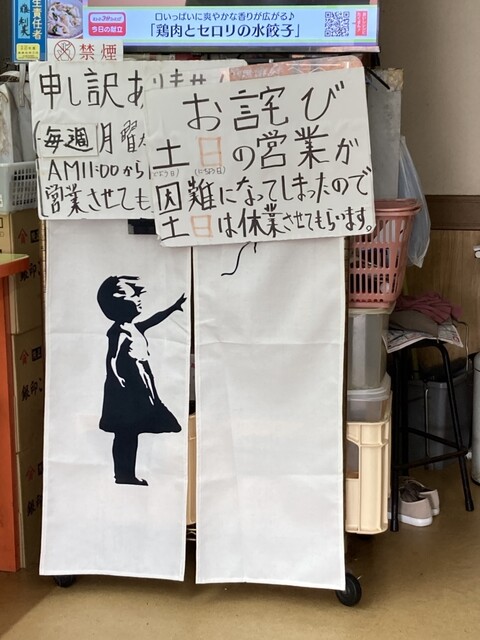 口いっぱいに爽やかな香りが広がる♪
今日の献立
「鶏肉とセロリの水餃子」
生責任者
禁煙
申し訳ありませ
(毎週)月曜
AM11:00から
営業させても
お詫び
土日の営業が
(どようび) (にちようび)
困難になってしまったので
土日は休業させてもらいます。